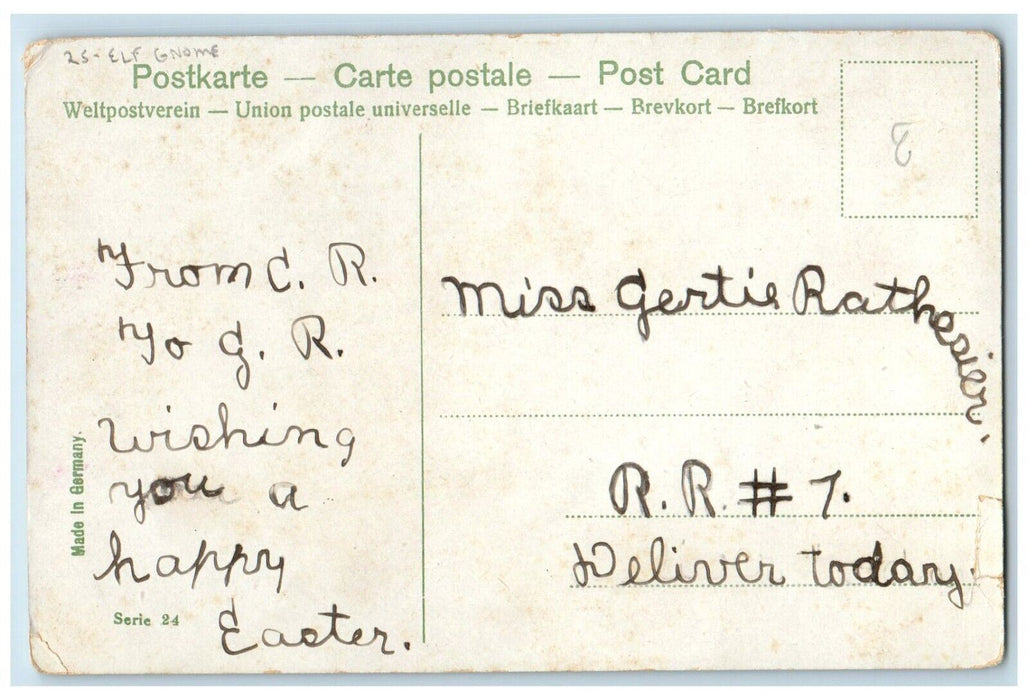 25- ELF GNOME
Postkarte — Carte postale — Post Card
Weltpostverein — Union postale universelle — Briefkaart — Brevkort — Brefkort
From C. R.
To G. R.
Wishing
you a
happy
Easter.
Made in Germany.
Serie 24
Miss Gertie
R. R. # 7.
Deliver today.